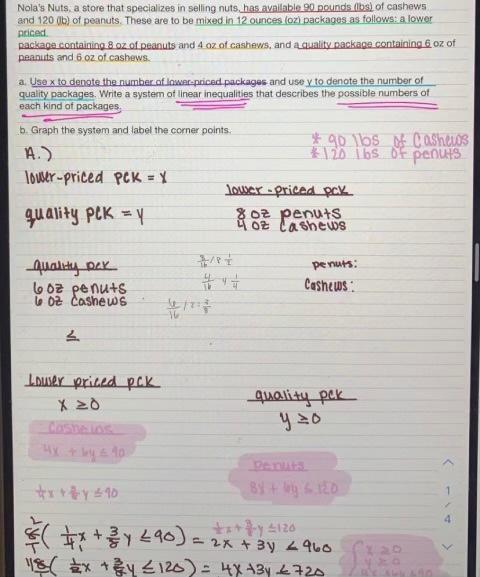 Nola's Nuts, a store that specializes in selling nuts, has available 90 pounds (lbs) of cashews
and 120 (lb) of peanuts. These are to be mixed in 12 ounces (oz) packages as follows: a lower
priced
package containing 8 oz of peanuts and 4 oz of cashews, and a quality package containing 6 oz of
peanuts and 6 oz of cashews.
a. Use x to denote the number of lower-priced packages and use y to denote the number of
quality packages. Write a system of linear inequalities that describes the possible numbers of
each kind of packages.
b. Graph the system and label the corner points.
* 90 lbs of Cashews
* 120 lbs of penuts
A.)
lower-priced PCK = X
quality PCK = Y
lower-priced pck
8 oz penuts
4 oz cashews
quality pck
6 oz penuts
6 oz cashews
8/16 /8 1/2
4/16 4 1/4
6/16 /2 = 3/8
penuts:
Cashews:
≤
Lower priced pck
x ≥ 0
quality pck
y ≥ 0
Cashews
4x + 6y ≤ 90
Penuts
8x + 6y ≤ 120
1/4 x + 3/8 y ≤ 90
1/2 x + 3/8 y ≤ 120
( 1/4 x + 3/8 y ≤ 90) = 2x + 3y ≤ 960
( 1/2 x + 3/8 y ≤ 120) = 4x + 3y ≤ 720
x ≥ 0
y ≥ 0
1
/
4